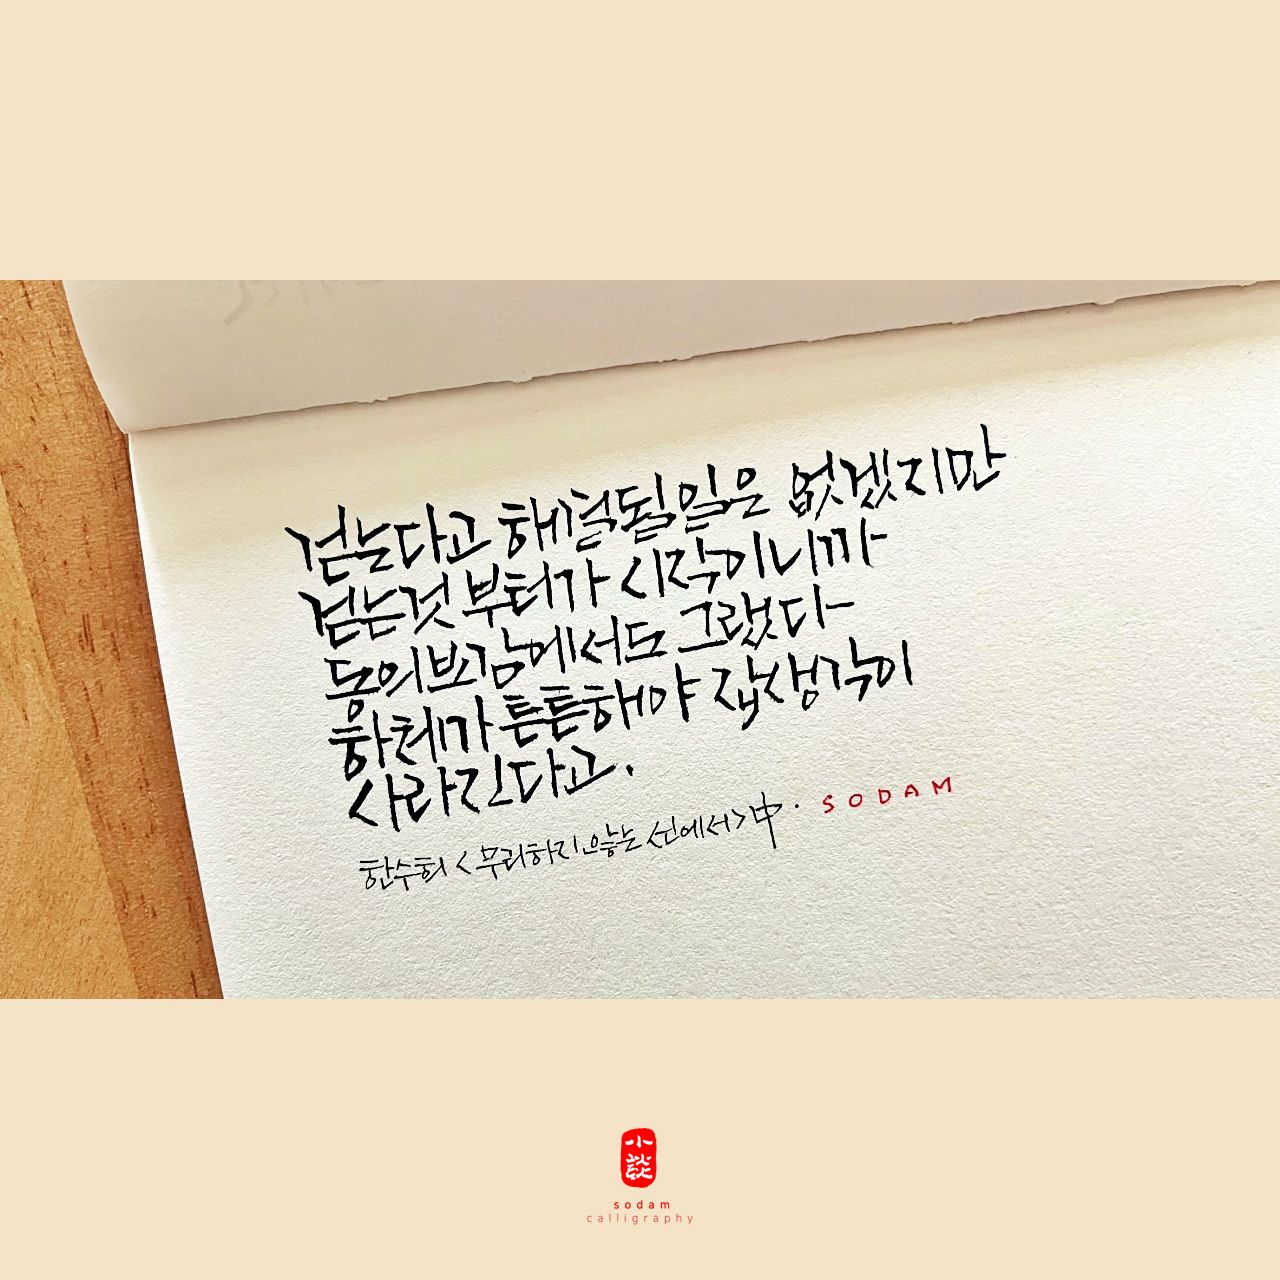 걷는다고 해결될 일은 없겠지만
걷는것 부터가 시작이니까
동의보감에서도 그랬다
하체가 튼튼해야 잡생각이
사라진다고.
한수희 <무리하지 않는 선에서> 中. SODAM
小談
sodam
calligraphy